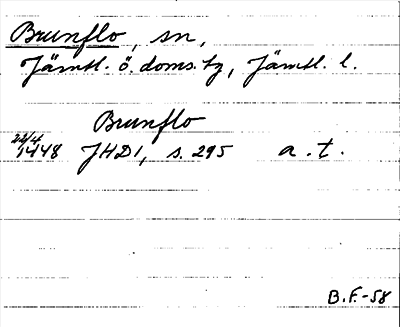 Brunflo, sn,
Jämtl. ö. doms. tg, Jämtl. l.
Brunflo
24/4
1448 JHD1, s. 295 a.t.
B.F.-58